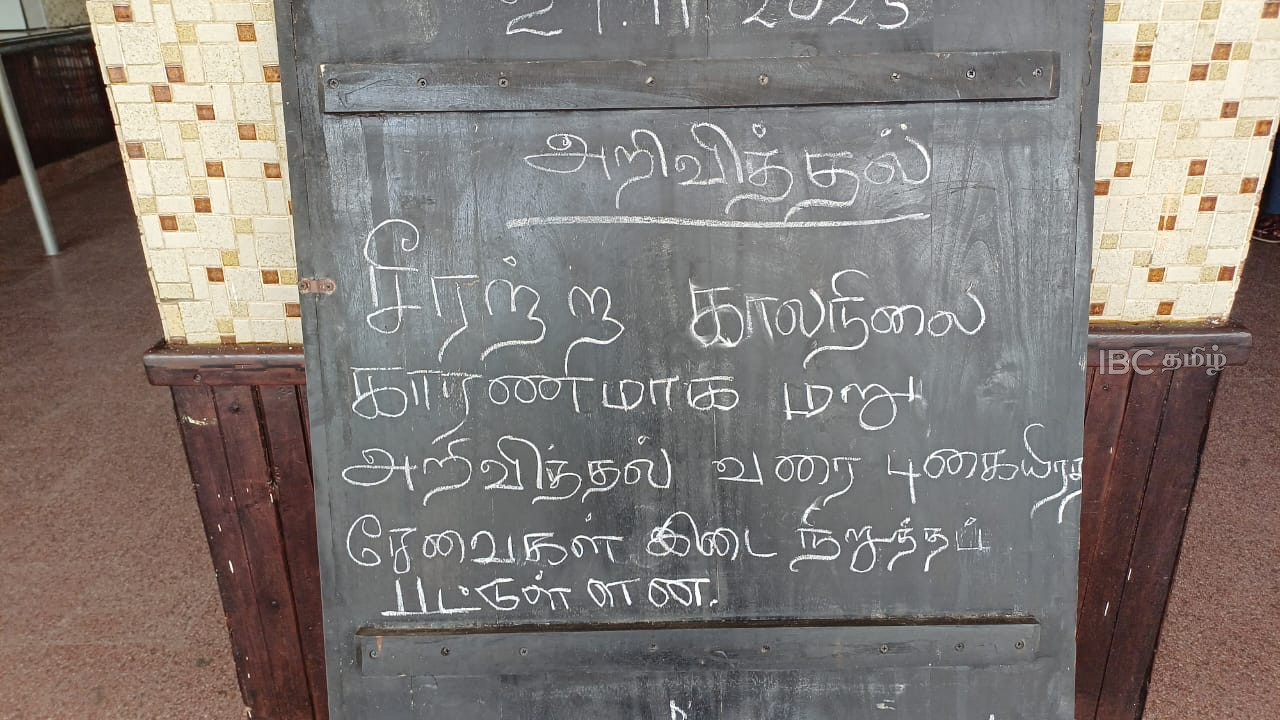 அறிவித்தல்
சீரற்ற காலநிலை
காரணமாக மறு
அறிவித்தல் வரை புகையிரத
சேவைகள் இடை நிறுத்தப்
பட்டுள்ளன.
IBC தமிழ்